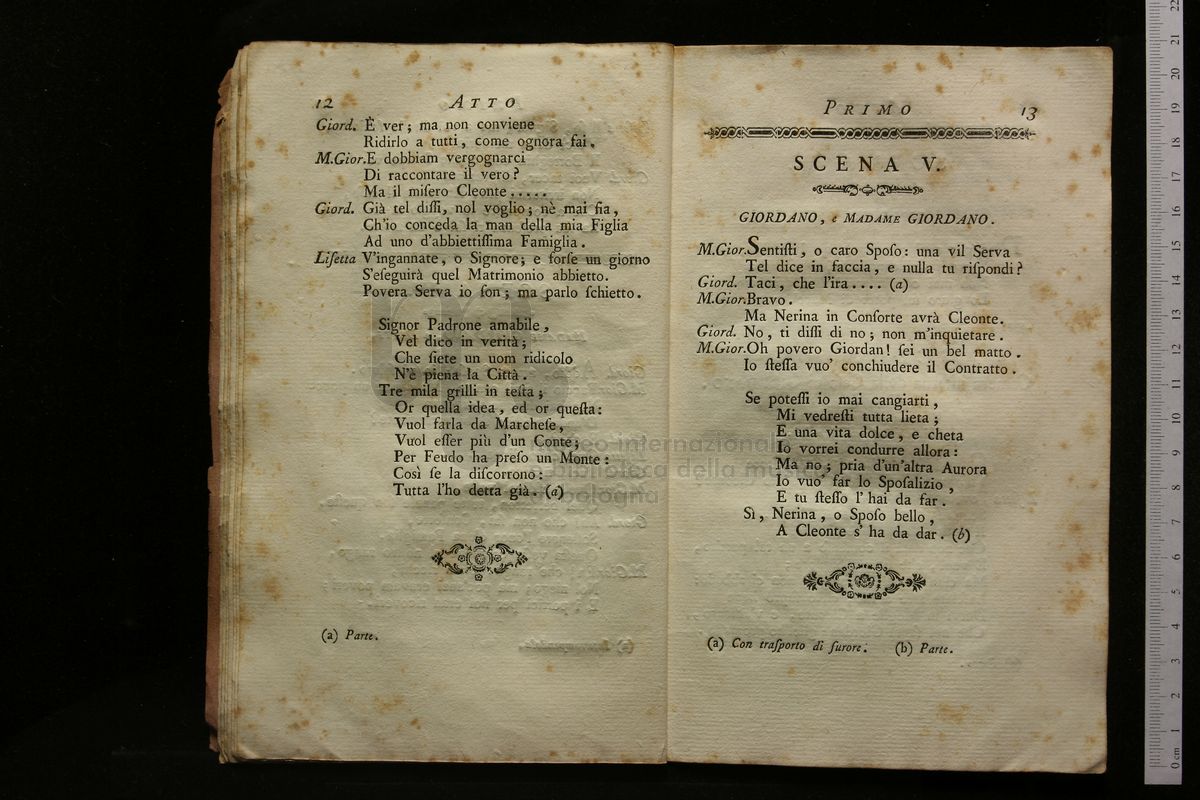 12 ATTO
Giord. È ver; ma non conviene
Ridirlo a tutti, come ognora fai.
M.Gior. E dobbiam vergognarci
Di raccontare il vero?
Ma il miſero Cleonte.....
Giord. Già tel diſſi, nol voglio; nè mai ſia,
Ch'io conceda la man della mia Figlia
Ad uno d'abbiettiſſima Famiglia.
Liſetta V'ingannate, o Signore; e forſe un giorno
S'eſeguirà quel Matrimonio abbietto.
Povera Serva io ſon; ma parlo ſchietto.
Signor Padrone amabile,
Vel dico in verità;
Che ſiete un uom ridicolo
N'è piena la Città.
Tre mila grilli in teſta;
Or quella idea, ed or queſta:
Vuol farla da Marcheſe,
Vuol eſſer più d'un Conte;
Per Feudo ha preſo un Monte:
Così ſe la diſcorrono:
Tutta l'ho detta già. (a)
(a) Parte.
PRIMO 13
SCENA V.
GIORDANO, e MADAME GIORDANO.
M.Gior. Sentiſti, o caro Spoſo: una vil Serva
Tel dice in faccia, e nulla tu riſpondi?
Giord. Taci, che l'ira.... (a)
M.Gior. Bravo.
Ma Nerina in Conſorte avrà Cleonte.
Giord. No, ti diſſi di no; non m'inquietare.
M.Gior. Oh povero Giordan! ſei un bel matto.
Io ſteſſa vuo' conchiudere il Contratto.
Se poteſſi io mai cangiarti,
Mi vedreſti tutta lieta;
E una vita dolce, e cheta
Io vorrei condurre allora:
Ma no; pria d'un'altra Aurora
Io vuo' far lo Spoſalizio,
E tu ſteſſo l' hai da far.
Sì, Nerina, o Spoſo bello,
A Cleonte s' ha da dar. (b)
(a) Con traſporto di furore. (b) Parte.
museo internazionale
e biblioteca della musica
di bologna
0 cm 1 2 3 4 5 6 7 8 9 10 11 12 13 14 15 16 17 18 19 20 21 22